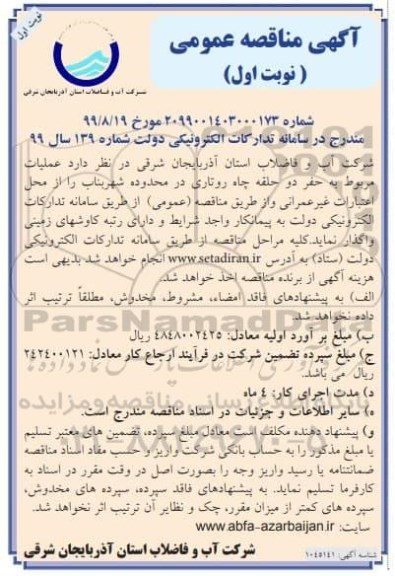 نوبت اول
آگهی مناقصه عمومی
( نوبت اول)
شرکت آب و فاضلاب استان آذربایجان شرقی
شماره ۲۰۹۹۰۰۱۴۰۳۰۰۰۱۷۳ مورخ ۹۹/۸/۱۹
مندرج در سامانه تدارکات الکترونیکی دولت شماره ۱۳۹ سال ۹۹
شرکت آب و فاضلاب استان آذربایجان شرقی در نظر دارد عملیات
مربوط به حفر دو حلقه چاه روتاری در محدوده شهربناب را از محل
اعتبارات غیرعمرانی واز طریق مناقصه (عمومی) از طریق سامانه تدارکات
الکترونیکی دولت به پیمانکار واجد شرایط و دارای رتبه کاوشهای زمینی
واگذار نماید.کلیه مراحل مناقصه از طریق سامانه تدارکات الکترونیکی
دولت (ستاد) به آدرس www.setadiran.ir انجام خواهد شد بدیهی است
هزینه آگهی از برنده مناقصه اخذ خواهد شد.
الف) به پیشنهادهای فاقد امضاء، مشروط، مخدوش، مطلقاً ترتیب اثر
داده نخواهد شد.
ب) مبلغ بر آورد اولیه معادل: ۴۸۴۸۰۰۲۴۲۵ ریال
ج) مبلغ سپرده تضمین شرکت در فرآیند ارجاع کار معادل: ۲۴۲۴۰۰۱۲۱
ریال می باشد.
د) مدت اجرای کار: ۴ ماه
ه) سایر اطلاعات و جزئیات در اسناد مناقصه مندرج است.
و) پیشنهاد دهنده مکلف است معادل مبلغ سپرده، تضمین های معتبر تسلیم
یا مبلغ مذکور را به حساب بانکی شرکت واریز و حسب مفاد اسناد مناقصه
ضمانتنامه یا رسید واریز وجه را بصورت اصل در وقت مقرر در اسناد به
کارفرما تسلیم نماید. به پیشنهادهای فاقد سپرده، سپرده های مخدوش،
سپرده های کمتر از میزان مقرر، چک و نظایر آن ترتیب اثر نخواهد شد.
سایت: www.abfa-azarbaijan.ir
شرکت آب و فاضلاب استان آذربایجان شرقی
شناسه آگهی: ۱۰۴۵۱۴۱
ParsNamadData
۰۲۱-۸۸۳۴۹۶۷۰-۵